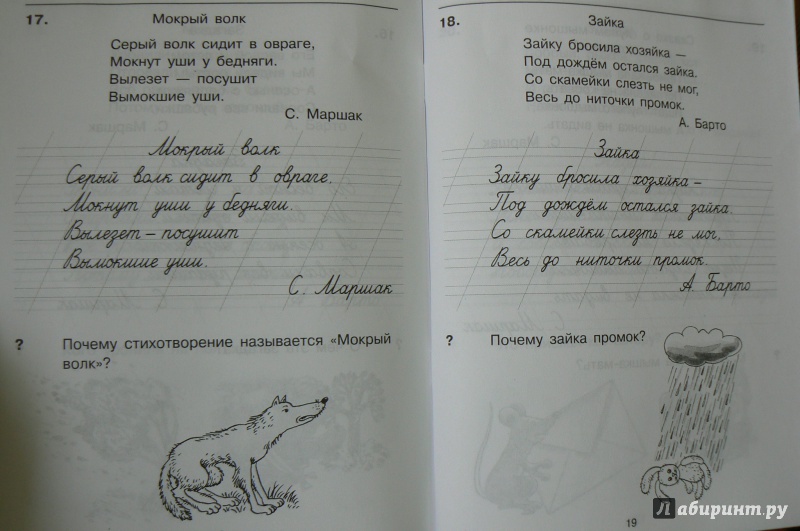 17.
Мокрый волк
Серый волк сидит в овраге,
Мокнут уши у бедняги.
Вылезет — посушит
Вымокшие уши.
С. Маршак
Мокрый волк
Серый волк сидит в овраге.
Мокнут уши у бедняги.
Вылезет – посушит
Вымокшие уши.
С. Маршак
? Почему стихотворение называется «Мокрый
волк»?
18.
Зайка
Зайку бросила хозяйка —
Под дождём остался зайка.
Со скамейки слезть не мог,
Весь до ниточки промок.
А. Барто
Зайка
Зайку бросила хозяйка –
Под дождём остался зайка.
Со скамейки слезть не мог,
Весь до ниточки промок.
А. Барто
? Почему зайка промок?
19
Лабиринт.ру